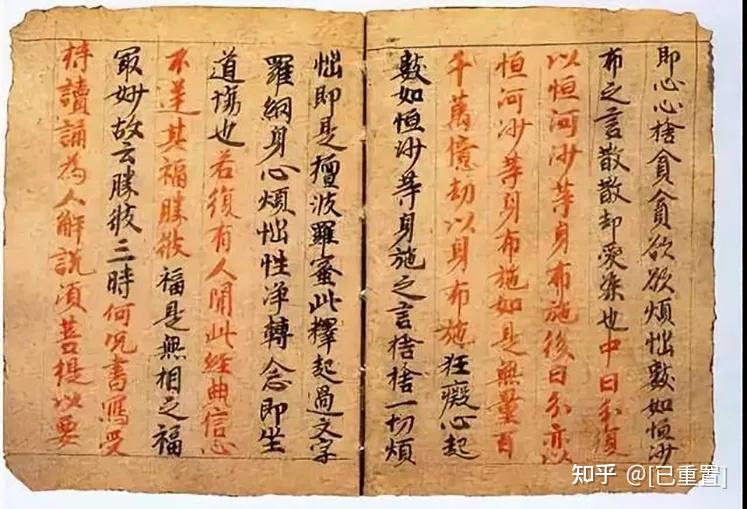 即心心捨貪貪欲欲煩惱數如恒沙
布之言散散却愛染也中日分復
以恒河沙等身布施後日分亦以
恒河沙等身布施如是無量百
千萬億劫以身布施狂癡心起
數如恒沙等身施之言捨捨一切煩
惱即是檀波羅蜜此釋起過文字
羅網身心煩惱性淨轉念即坐
道場也若復有人聞此經典信心
不逆其福勝彼福是無相之福
最妙故云勝彼三時何況書寫受
持讀誦為人解說須菩提以要
知乎 @[已重置]